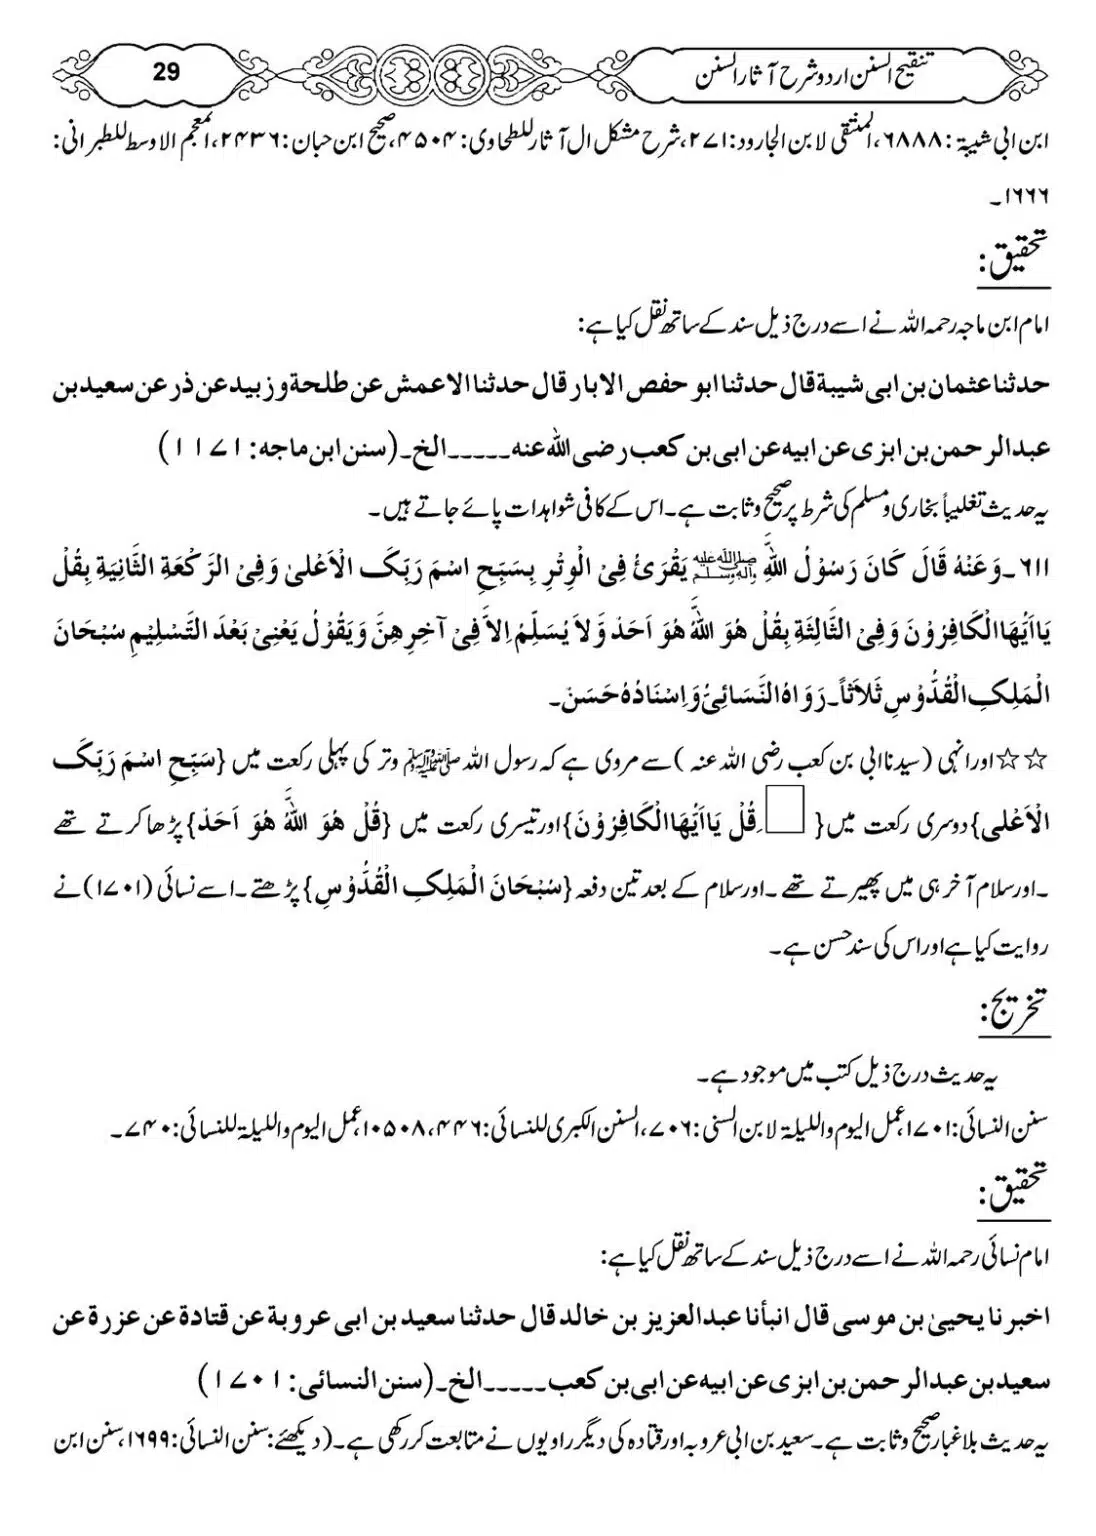 تنقیح السنن اردو شرح آثار السنن
29
ابن ابی شیبۃ: ۶۸۸۸، المنتقی لابن الجارود: ۲۷۱، شرح مشکل ال آثار للطحاوی: ۴۵۰۴، صحیح ابن حبان: ۲۴۳۶، المعجم الاوسط للطبرانی:
۱۶۶۶۔
تحقیق:
امام ابن ماجہ رحمہ اللہ نے اسے درج ذیل سند کے ساتھ نقل کیا ہے:
حدثنا عثمان بن ابی شیبة قال حدثنا ابو حفص الابار قال حدثنا الاعمش عن طلحة و زبید عن ذر عن سعید بن
عبدالرحمن بن ابزی عن ابیه عن ابی بن کعب رضی الله عنه۔۔۔۔۔الخ۔(سنن ابن ماجه: ۱۱۷۱)
یہ حدیث تغلیباً بخاری و مسلم کی شرط پر صحیح و ثابت ہے۔ اس کے کافی شواہدات پائے جاتے ہیں۔
۶۱۱۔ وَعَنْهُ قَالَ کَانَ رَسُوْلُ اللّٰهِ ﷺ یَقْرَئُ فِیْ الْوِتْرِ بِسَبِّحِ اسْمَ رَبِّکَ الْاَعْلیٰ وَفِی الرَّکْعَةِ الثَّانِیَةِ بِقُلْ
یَااَیُّهَاالْکَافِرُوْنَ وَفِیْ الثَّالِثَةِ بِقُلْ هُوَ اللّٰهُ هُوَ اَحَدْ وَّلَا یُسَلِّمُ اِلاَّ فِیْ آخِرِهِنَّ وَیَقُوْلُ یَعْنِیْ بَعْدَ التَّسْلِیْمِ سُبْحَانَ
الْمَلِکِ الْقُدُّوْسِ ثَلاَثاً۔ رَوَاهُ النَّسَائِیُّ وَاِسْنَادُهُ حَسَنْ۔
☆☆ اور انہی (سیدنا ابی بن کعب رضی اللہ عنہ) سے مروی ہے کہ رسول اللہ ﷺ وتر کی پہلی رکعت میں {سَبِّحِ اسْمَ رَبِّکَ
الْاَعْلی} دوسری رکعت میں {قُلْ یَااَیُّهَاالْکَافِرُوْنَ} اور تیسری رکعت میں {قُلْ هُوَ اللّٰهُ هُوَ اَحَدْ} پڑھا کرتے تھے
۔ اور سلام آخر ہی میں پھیرتے تھے۔ اور سلام کے بعد تین دفعہ {سُبْحَانَ الْمَلِکِ الْقُدُّوْسِ} پڑھتے۔ اسے نسائی (۱۷۰۱) نے
روایت کیا ہے اور اس کی سند حسن ہے۔
تخریج:
یہ حدیث درج ذیل کتب میں موجود ہے۔
سنن النسائی: ۱۷۰۱، عمل الیوم واللیلۃ لابن السنی: ۷۰۶، السنن الکبری للنسائی: ۴۴۶، ۱۰۵۰۸، عمل الیوم واللیلۃ للنسائی: ۷۴۰۔
تحقیق:
امام نسائی رحمہ اللہ نے اسے درج ذیل سند کے ساتھ نقل کیا ہے:
اخبرنا یحییٰ بن موسی قال انبأنا عبدالعزیز بن خالد قال حدثنا سعید بن ابی عروبة عن قتادة عن عزرة عن
سعید بن عبدالرحمن بن ابزی عن ابیه عن ابی بن کعب۔۔۔۔۔الخ۔(سنن النسائی: ۱۷۰۱)
یہ حدیث بلا غبار صحیح و ثابت ہے۔ سعید بن ابی عروبہ اور قتادہ کی دیگر راویوں نے متابعت کر رکھی ہے۔ (دیکھئے: سنن النسائی: ۱۶۹۹، سنن ابن